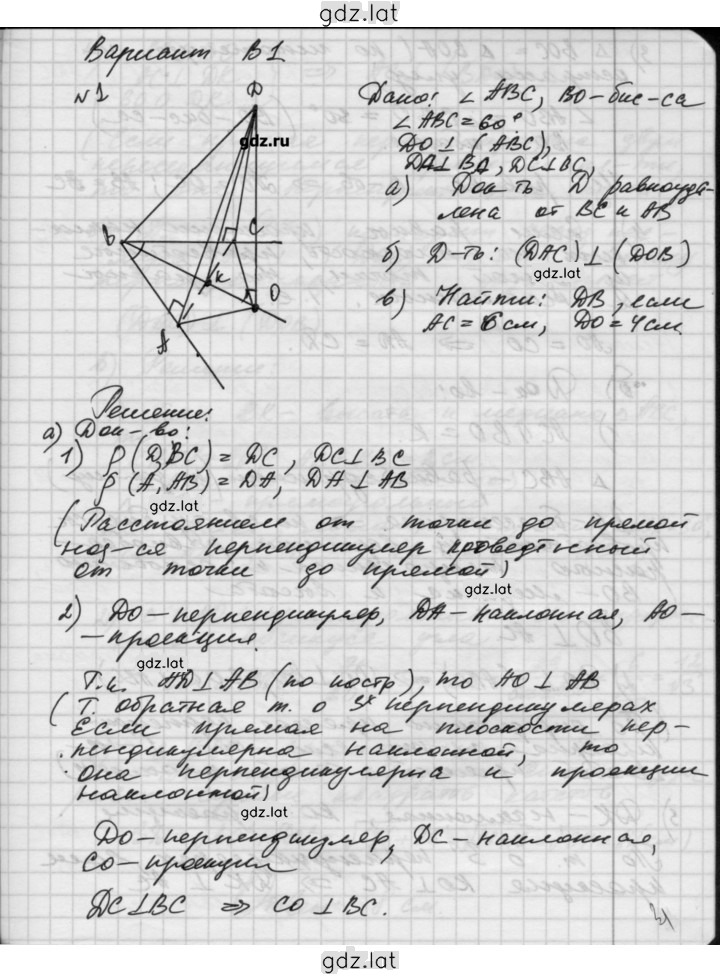 gdz.lat
Вариант В1
№1
D
gdz.ru
В
С
К
О
А
Дано: ∠АВС, ВО-бис-са
∠АВС=60°
DO⊥(АВС),
DA⊥ВА, DC⊥ВС,
а) Док-ть D равноуда-
лена от ВС и АВ
б) Д-ть: (DAC)⊥(DOB)
gdz.lat
в) Найти: DB, если
АС=6см, DO=4см.
Решение:
а) Док-во:
1) ρ(D,ВС)=DC, DC⊥ВС
ρ(А,АВ)=DA, DA⊥АВ
gdz.lat
(Расстоянием от точки до прямой
наз-ся перпендикуляр проведенный
от точки до прямой)
gdz.lat
2) DO-перпендикуляр, DA-наклонная, АО-
-проекция.
gdz.lat
Т.к. AD⊥АВ (по постр), то АО⊥АВ
(Т. обратная т. о 3х перпендикулярах
Если прямая на плоскости пер-
пендикулярна наклонной, то
она перпендикулярна и проекции
наклонной)
gdz.lat
DO-перпендикуляр, DC-наклонная,
СО-проекция
DC⊥ВС ⇒ СО⊥ВС.
gdz.lat